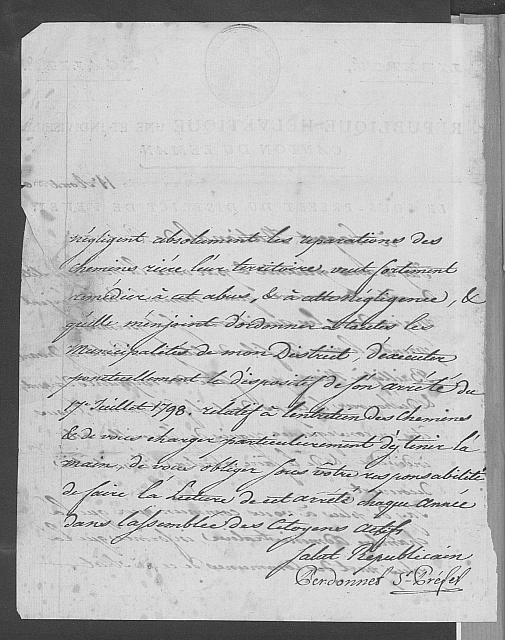 négligent absolument les reparations des
chemins riére leur territoire, veut fortement
remédier à cet abus, & à cette négligence, &
qu'elle m'enjoint d'ordonner à toutes les
Municipalités de mon District, d'executer
ponctuellement le dispositif de son arrêté du
17e Juillet 1798. relatif à l'entretien des Chemins
& de vous charger particulierement d'y tenir la
main, de vous obliger sous vôtre responsabilité
de faire la lecture de cet arrêté chaque Année
dans l'assemblée des Citoyens actifs
Salut Républicain
Perdonnet St Préfet